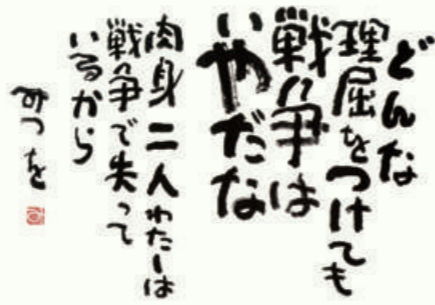 どんな
理屈をつけても
戦争は
いやだな
肉身二人わたしは
戦争で失って
いるから
みつを